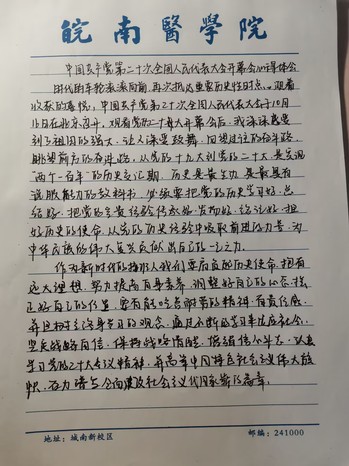 皖南醫學院
中国共产党第二十次全国人民代表大会开幕会心得体会
时代的车轮滚滚向前,再次抵达重要历史时点。观着
收获的喜悦,中国共产党第二十次全国人民代表大会于10月
16日在北京召开。观看党二十大开幕会后,我深深感受
到了祖国的强大,让人深受鼓舞。回望过往的奋斗路,
眺望前方的奋进路,从党的十九大到党的二十大是实现
"两个一百年"的历史交汇期。历史是最真实,是最具有
说服能力的教科书。必须要把党的历史学习好、总
结好,把党的宝贵经验传承好、发扬好,铭记好,担
好历史的使命,从党的历史经验中吸取前进的力量,为
中华民族的伟大复兴贡献出自己的一己之力。
作为新时代的接班人我们要肩负起历史使命,抱有
远大理想,努力提高自身素养,调整好自己的心态,找
正好自己的位置,要有能吃苦耐劳的精神,有责任感,
并且树立终身学习的观念,通过不断的学习来适应社会,
坚定战略自信,保持战略清醒,增强信心斗志,认真
学习党的二十大会议精神,并高举中国特色社会主义伟大旗
帜,奋力谱写全面建设社会主义现代国家新的篇章。
地址:城南新校区
邮编:241000